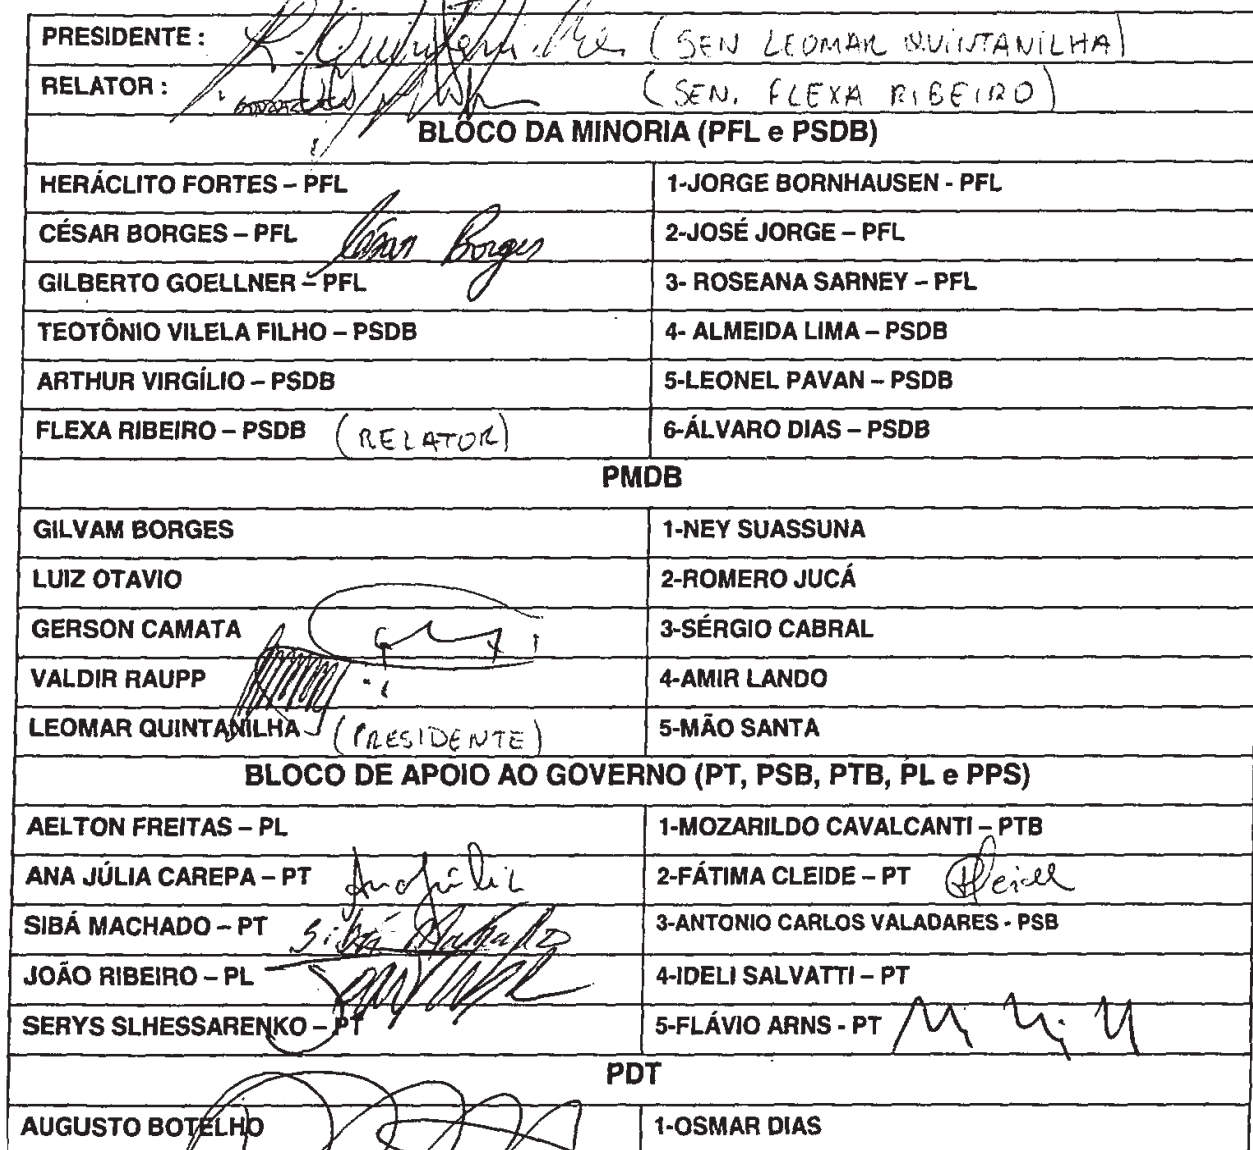 PRESIDENTE : (SEN LEOMAR QUINTANILHA)
RELATOR : (SEN. FLEXA RIBEIRO)
BLOCO DA MINORIA (PFL e PSDB)
HERÁCLITO FORTES – PFL 1-JORGE BORNHAUSEN - PFL
CÉSAR BORGES – PFL César Borges 2-JOSÉ JORGE – PFL
GILBERTO GOELLNER – PFL 3- ROSEANA SARNEY – PFL
TEOTÔNIO VILELA FILHO – PSDB 4- ALMEIDA LIMA – PSDB
ARTHUR VIRGÍLIO – PSDB 5-LEONEL PAVAN – PSDB
FLEXA RIBEIRO – PSDB (RELATOR) 6-ÁLVARO DIAS – PSDB
PMDB
GILVAM BORGES 1-NEY SUASSUNA
LUIZ OTAVIO 2-ROMERO JUCÁ
GERSON CAMATA 3-SÉRGIO CABRAL
VALDIR RAUPP 4-AMIR LANDO
LEOMAR QUINTANILHA (PRESIDENTE) 5-MÃO SANTA
BLOCO DE APOIO AO GOVERNO (PT, PSB, PTB, PL e PPS)
AELTON FREITAS – PL 1-MOZARILDO CAVALCANTI – PTB
ANA JÚLIA CAREPA – PT Ana Júlia 2-FÁTIMA CLEIDE – PT
SIBÁ MACHADO – PT Sibá Machado 3-ANTONIO CARLOS VALADARES - PSB
JOÃO RIBEIRO – PL 4-IDELI SALVATTI – PT
SERYS SLHESSARENKO – PT 5-FLÁVIO ARNS - PT
PDT
AUGUSTO BOTELHO 1-OSMAR DIAS